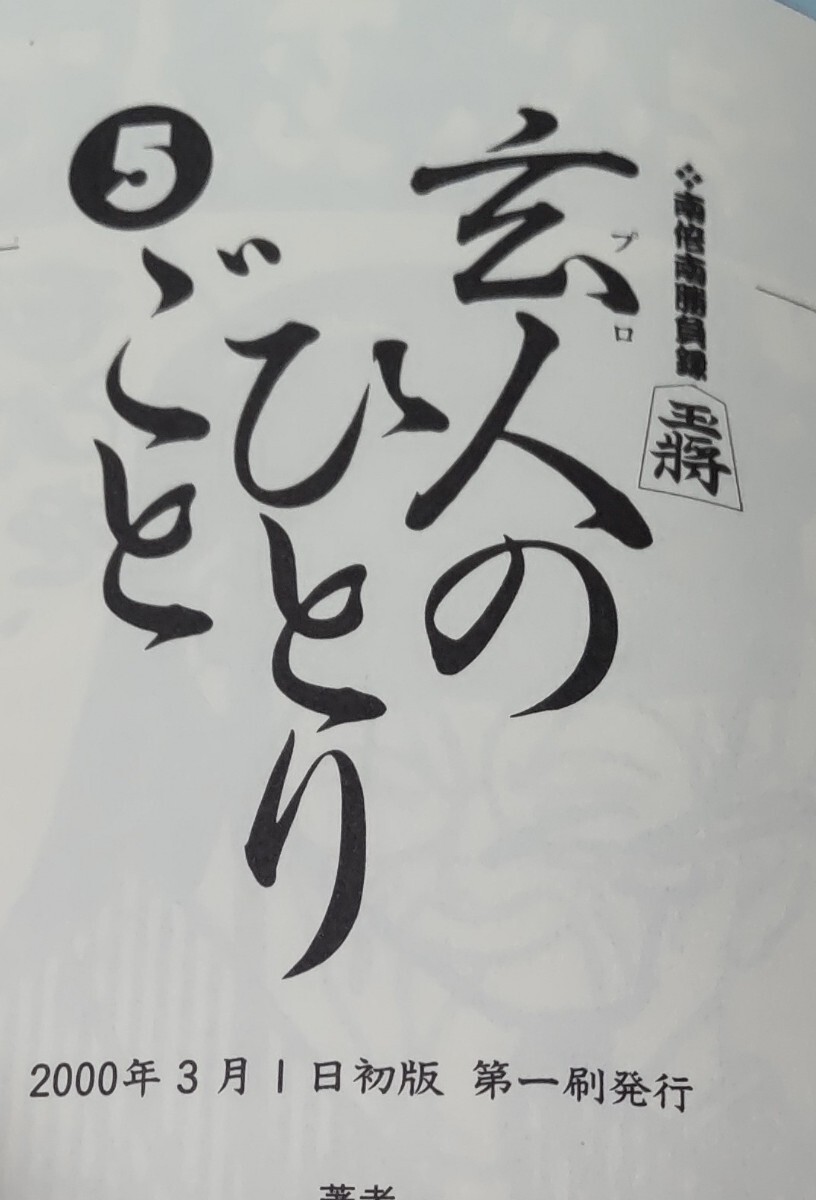 ❖南倍南勝負録
王将
玄人の
プロ
ひとり
ごと
5
2000年3月1日初版 第一刷発行
著者